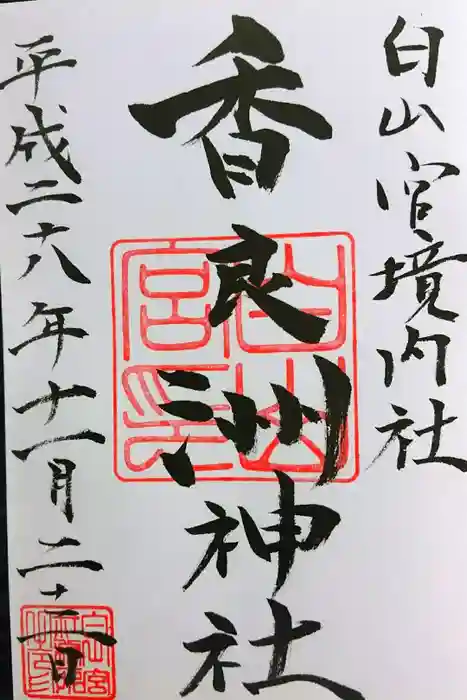 白山宮境内社
香良洲神社
平成二十八年十一月二十二日
白山宮印